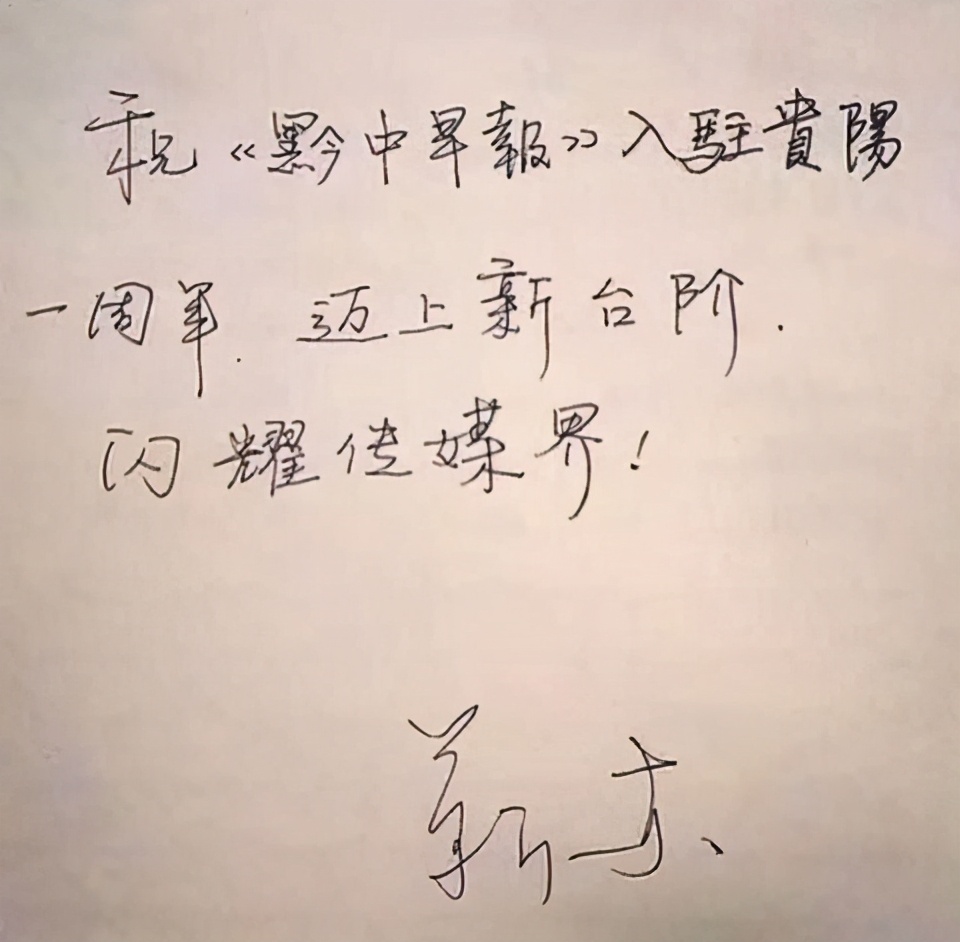 祝《黔中早報》入駐貴陽
一周年.迈上新台阶.
闪耀传媒界!